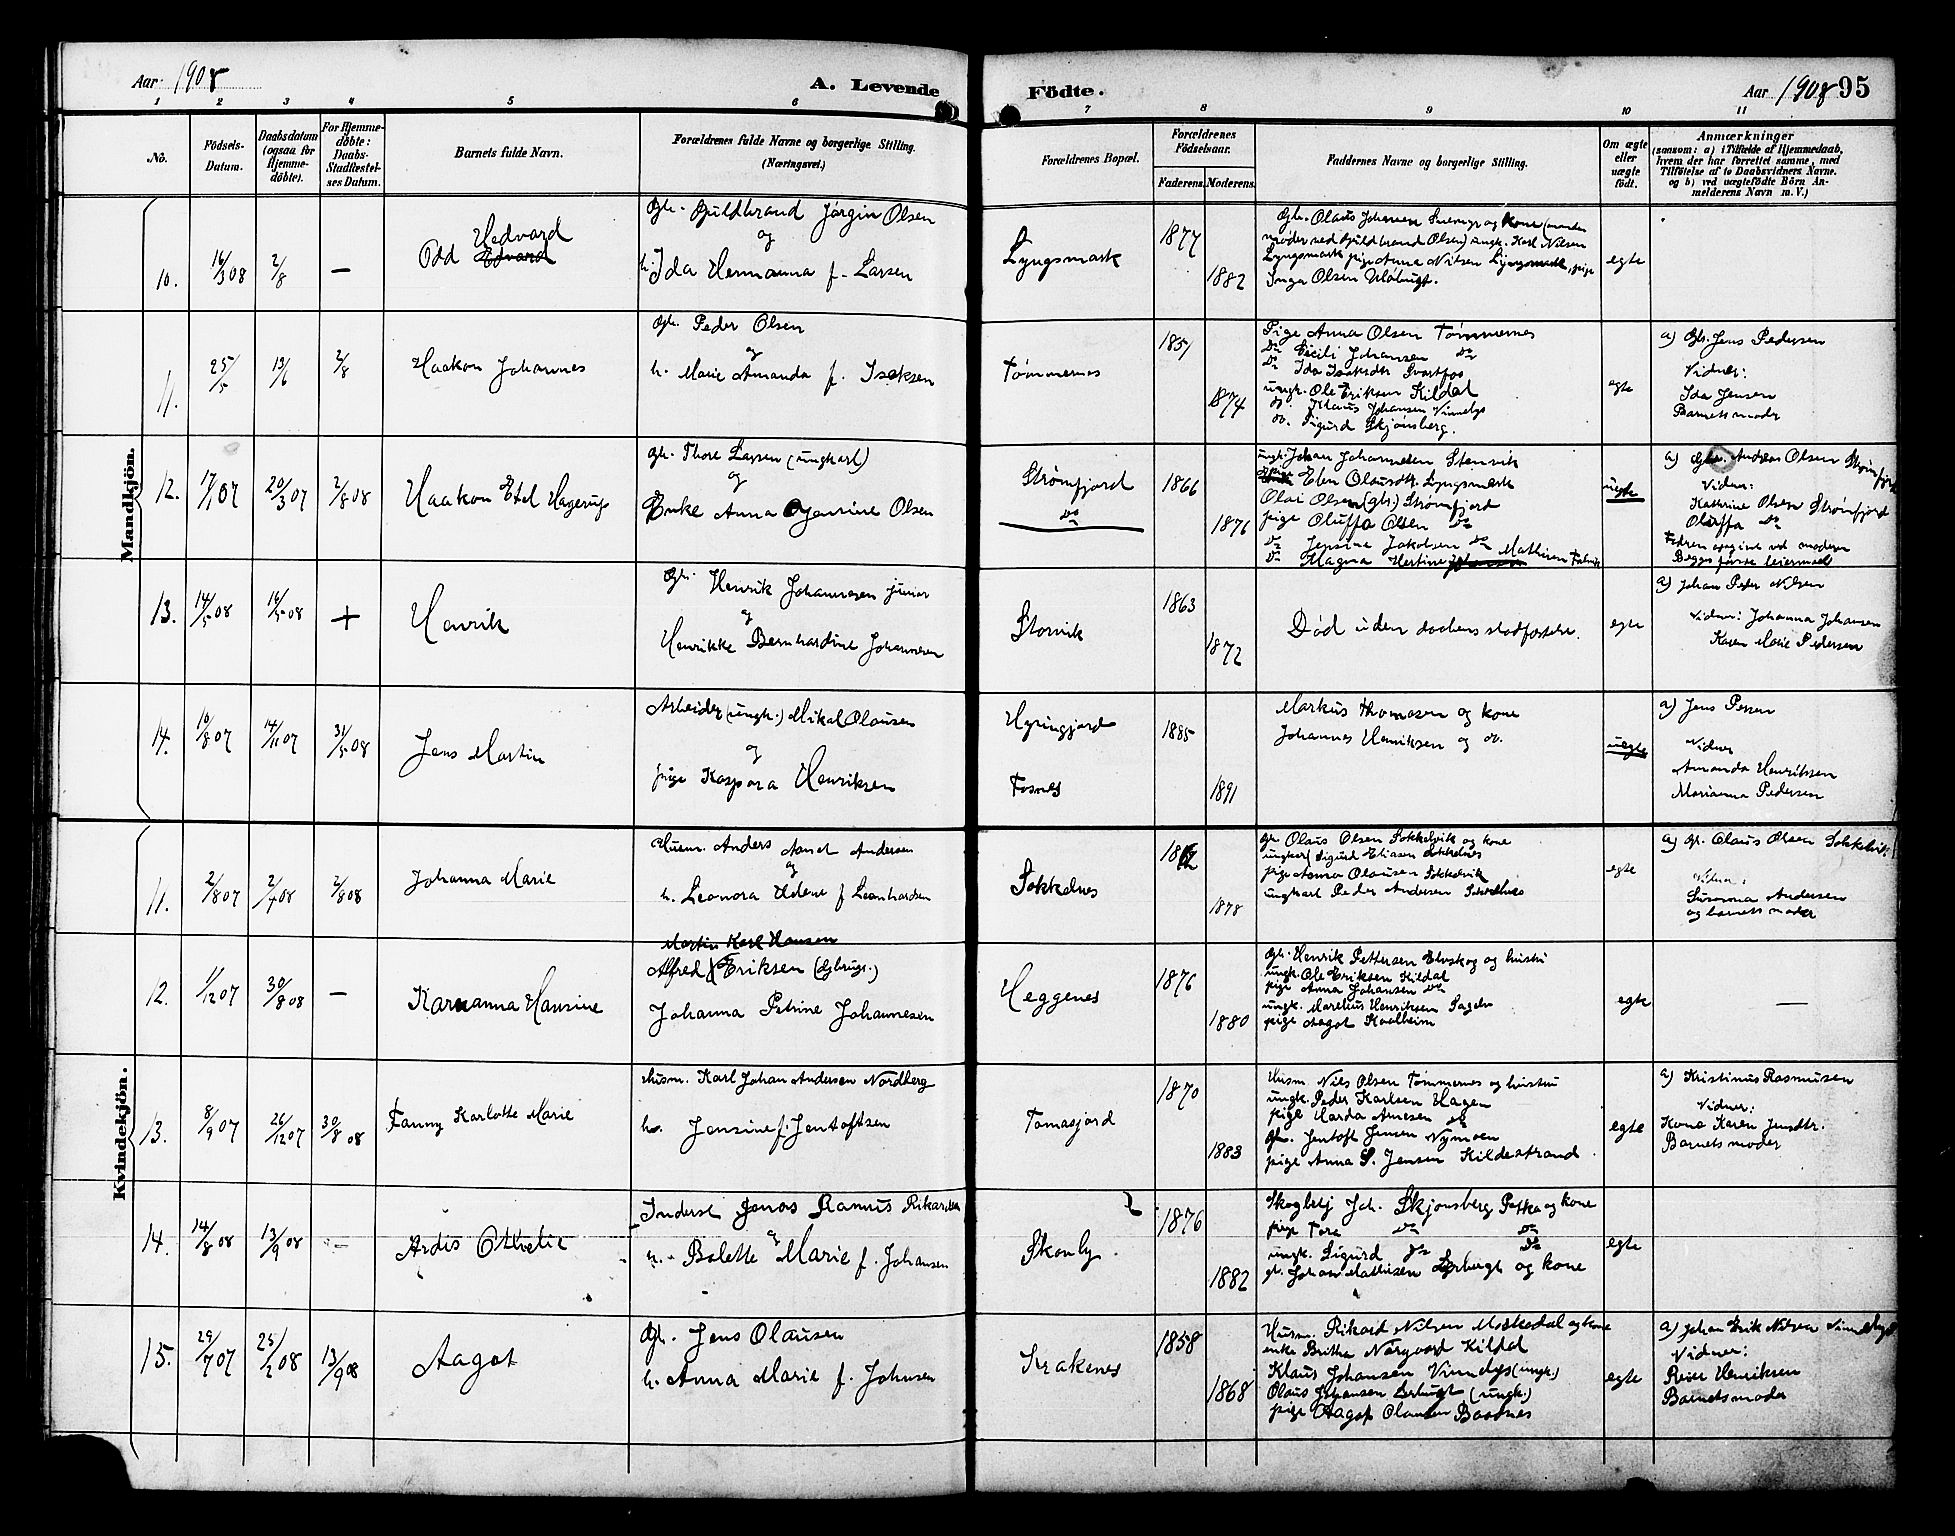 Aar 1908
A. Levende
Födte.
Aar 1908 95
1 2 3 4 5 6 7 8 9 10 11
No.
Födsels-Datum.
Daabsdatum (ogsaa for Hjemme-döbte).
For Hjemme-döbte: Daabs-Stadfæstel-ses Datum.
Barnets fulde Navn.
Forældrenes fulde Navne og borgerlige Stilling.
(Næringsvei.)
Forældrenes Bopæl.
Forældrenes Födselsaar.
Faderens. Moderens.
Faddernes Navne og borgerlige Stilling.
Om ægte eller uægte födt.
Anmærkninger
(saasom: a) i Tilfælde af Hjemmedaab,
hvem der har forrettet samme, med
Tilföielse af to Daabsvidners Navne.
og b) ved uægtefödte Börn An-
melderens Navn m. V.)
Mandkjön.
10. 16/3 08 2/8 —
Odd Hedvard Edvard
Gbr. Guldbrand Jørgin Olsen
og
h. Ida Hermanna f. Larsen
Lyngsmark
1877
1882
Inga Olsen
egte
11. 25/5 13/6 2/8
Haakon Johannes
Gbr. Peder Olsen
og
h. Marie Amanda f. Isaksen
Tømmernes
1851
1874
Pige Anna Olsen Tømmernes
do Cecili Johansen do
do Ida Isaksdtr Svartfos
ungk. Ole Eriksen Kildal
do. Klaus Johansen Vinnelys
do. Sigurd Skjønsberg.
egte
a) Gbr. Jens Pedersen
Vidner:
Ida Jensen
Barnets moder
12. 17/1 07 20/3 07 2/8 08
Haakon Etel Hagerup
gbr. Thore Larsen (ungkarl)
og
Enke Anna Jensine Olsen
Strømfjord
do
1866
1876
ungk. Johan Johannesen Stenvik
pige Elen Olausdtr. Lyngsmark
Olai Olsen (gbr.) Strømfjord
pige Oluffa Olsen do
do Jensine Jakobsen do
do Magna Hertine Mathisen
uegte
a) Gbr. Andreas Olsen Strømfjord
Vidner:
Kathrine Olsen Strømfjord
Oluffa do
Fadren opgivet ved moderen
Begges første leiermaal
13. 14/5 08 16/5 08 +
Henrik
Gbr. Henrik Johannesen junior
og
Henrikke Bernhardine Johannesen
Storvik
1863
1872
Död uden daabens stadfæstelse.
egte
a) Johan Peder Nilsen
Vidner: Johanna Johansen
Karen Marie Pedersen
14. 10/8 07 14/11 07 31/5 08
Jens Martin
Arbeider (ungk.) Mikal Olausen
og
pige Kaspara Henriksen
Fosnes
1885
1891
Markus Thomasen og kone
Johannes Henriksen og do.
uegte
a) Jens Persen
Vidner
Amanda Henriksen
Marianna Pedersen
Kvindekjön.
11. 2/8 07 2/4 08 2/8 08
Johanna Marie
Husm. Anders Andersen
og
h. Leonora Helene f Leonhardsen
Sokkelnes
1878
gbr. Olaus Olsen Sokkelvik og kone
ungkarl Sigurd Eliasen Sokkelnes
pige Anna Olausen Sokkelvik
ungkarl Peder Andersen Sokkelnes
egte
a) Gbr. Olaus Olsen Sokkelvik
Vidner:
Susanna Andersen
og barnets moder
12. 1/12 07 30/8 08 —
Karnanna Hansine
Martin Karl Hansen
Alfred Eriksen (Gbrugr.)
Johanna Petrine Johannesen
Heggenes
1876
1880
Gbr. Henrik Pettersen Elvskog og hustru
ungk. Ole Eriksen Kildal
pige Anna Johansen do
ungk. Marelius Henriksen
pige Aagot Kaalheim
egte
—
13. 8/9 07 26/12 07 30/8 08
Fanny Karlotte Marie
Husm. Karl Johan Andersen Nordberg
h. Jensine f. Jentoftsen
Tomasjord
1870
1883
Husm Nils Olsen Tømmernes og hustru
ungk. Peder Karlsen Hagen
pige Harda Arnesen do
Gbr. Jentoft Jensen Nymoen
pige Anna S. Jensen Kildestrand
egte
a) Kristinus Rasmussen
Vidner:
Kone Karen Jensdtr.
Barnets moder
14. 14/8 08 13/9 08 —
Ardis Othelie
Inderst Jonas Ramus Rikardsen
og
h. Bolette Marie f. Johansen
Skonly
1876
1882
Skogbetj Joh. Skjønsberg og kone
pige Tora do do
ungk. Sigurd do do
gbr. Johan Mathisen og kone
egte
15. 29/7 07 25/2 08 13/9 08
Aagot
Gbr. Jens Olausen
h. Anna Marie f. Johnsen
Krakenes
1858
1868
Husm. Rikard Nilsen Moskodal og kone
enke Britha Nørgaard Kildal
Klaus Johansen Vinnelys (ungk.)
Olaus Johansen (ungk.)
pige Aagot Olausen Baadnes
egte
a) Johan Erik Nilsen Vinnelys
Vidner:
Reier Henriksen
Barnets moder